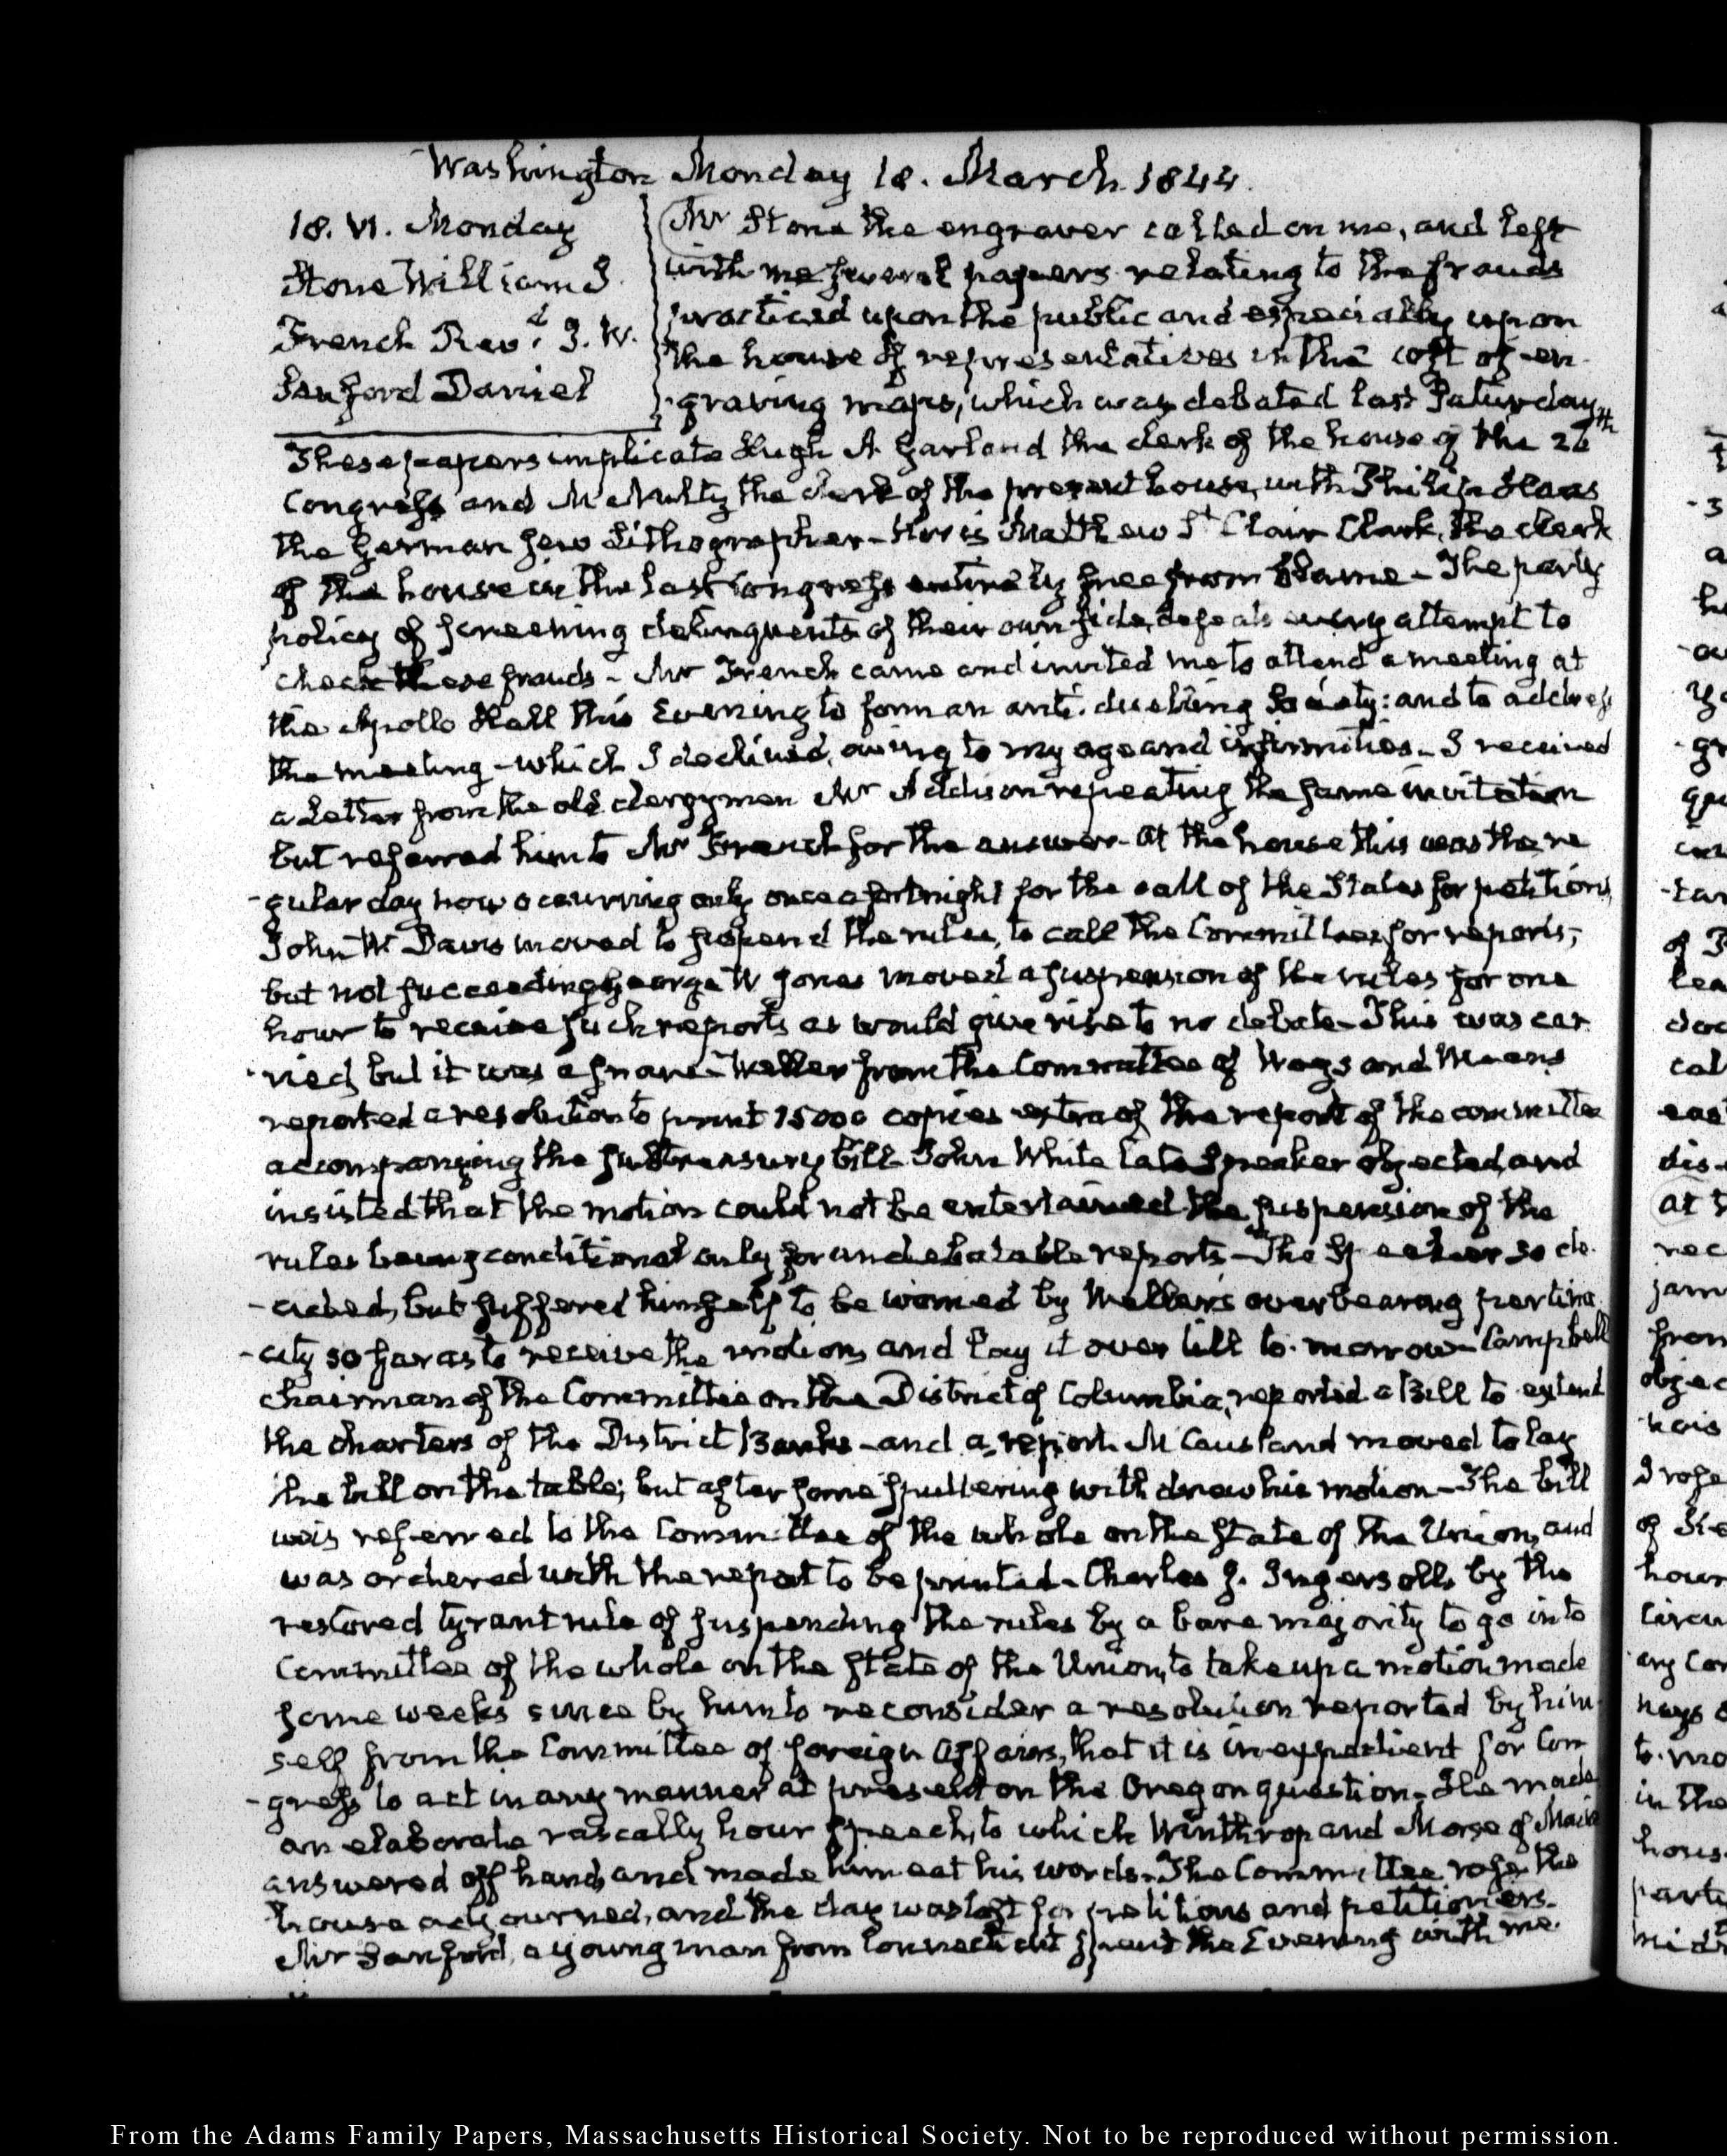 Washington Monday 18. March 1844.
18. VI. Monday
Stone William J.
French Revd. J. W.
Sanford Daniel
Mr Stone the engraver called on me, and left
with me several papers relating to the frauds
practiced upon the public and especially upon
the house of representatives in the cost of en-
graving maps, which was debated last Saturday
These papers implicate Hugh A. Garland the clerk of the house of the 26th
Congress and McNulty the clerk of the present house, with Philip Haas
the German Jew Lithographer - Nor is Matthew St Clair Clark, the clerk
of the house in the last Congress entirely free from blame - The party
policy of screening delinquents of their own side, defeats every attempt to
check these frauds - Mr French came and invited me to attend a meeting at
the Apollo Hall this Evening to form an anti-duelling Society: and to address
the meeting - which I declined, owing to my age and infirmities - I received
a Letter from the old clergyman Mr Addison repeating the same invitation
but referred him to Mr French for the answer - At the house this was the re
-gular day now occurring only once a fortnight for the call of the States for petitions
John W. Davis moved to suspend the rules, to call the Committees for reports;
but not succeeding George W Jones moved a suspension of the rules for one
hour to receive such reports as would give rise to no debate - This was car
-ried, but it was a snare - Weller from the Committee of Ways and Means
reported a resolution to print 15000 copies extra of the report of the committee
accompanying the subtreasury bill. John White late Speaker objected, and
insisted that the motion could not be entertained the suspension of the
rules being conditional only for undebatable reports - The Speaker so de-
-cided, but suffered himself to be worried by Weller's overbearing pertina
-city so far as to receive the motion, and lay it over till to-morrow - Campbell
chairman of the Committee on the District of Columbia, reported a Bill to extend
the charters of the District Banks - and a report. McCausland moved to lay
the bill on the table; but after some sputtering withdrew his motion - The bill
was referred to the Committee of the whole on the State of the Union, and
was ordered with the report to be printed - Charles J. Ingersoll, by the
restored tyrant rule of suspending the rules by a bare majority to go into
Committee of the whole on the State of the Union, to take up a motion made
some weeks since by him to reconsider a resolution reported by him-
self from the Committee of foreign Affairs, that it is inexpedient for Con
-gress to act in any manner at present on the Oregon question - He made
an elaborate rascally hour speech, to which Winthrop and Morse of Maine
answered off hand, and made him eat his words - The Committee rose, the
house adjourned, and the day was lost for petitions and petitioners.
Mr Sanford, a young man from Connecticut spent the Evening with me.
From the Adams Family Papers, Massachusetts Historical Society. Not to be reproduced without permission.